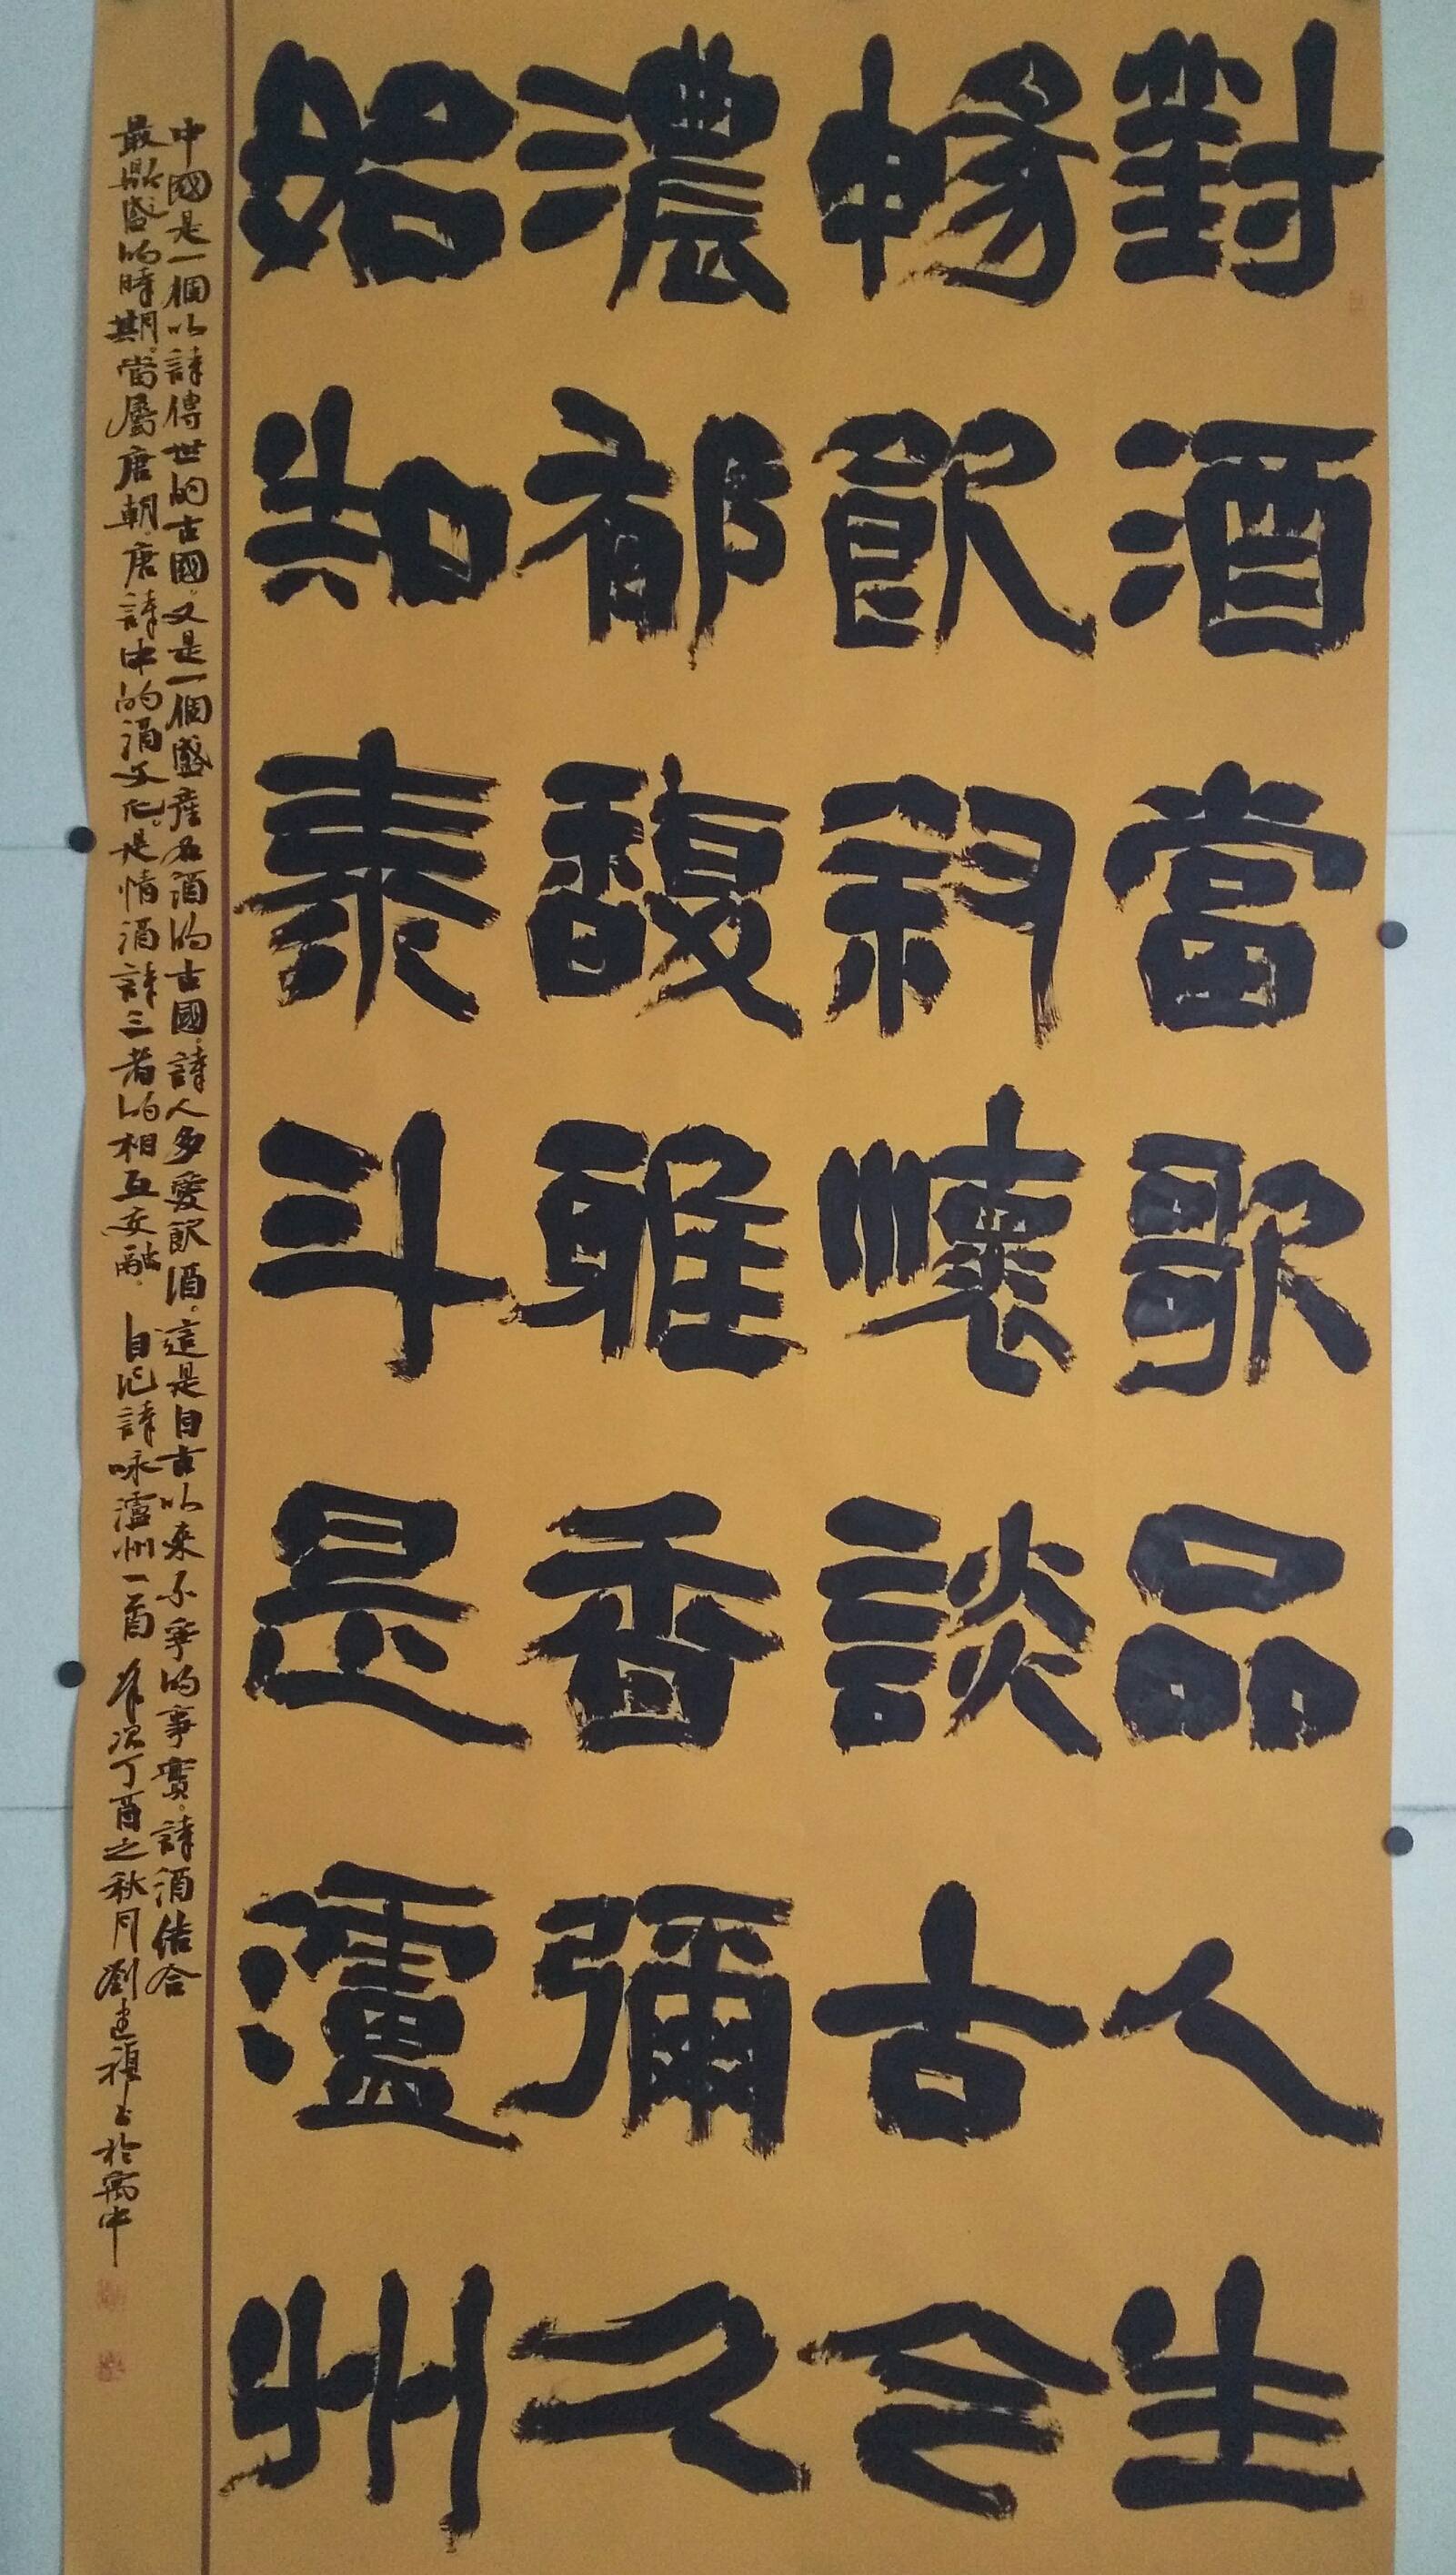 對酒當歌品人生
暢飲敘懷談古今
濃郁馥雅香彌久
始知泰斗是瀘州
中國是一個以詩傳世的古國又是一個盛產名酒的古國詩人多愛飲酒。這是自古以來不爭的事實。詩酒結合
最鼎盛的時期。當屬唐朝。唐詩中的酒文化。是情酒詩三者的相互交融。自作詩咏瀘州一首 歲次丁酉之秋月劉建禎書於寓中